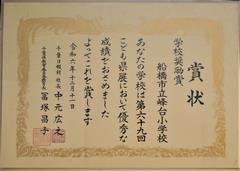 賞状
学校奨励賞
船橋市立峰台小学校
あなたの学校は第六十九回
こども県展において優秀な
成績をおさめました
よってこれを賞します
令和六年十二月十一日
千葉日報社 社長 中元広之
冨塚昌子